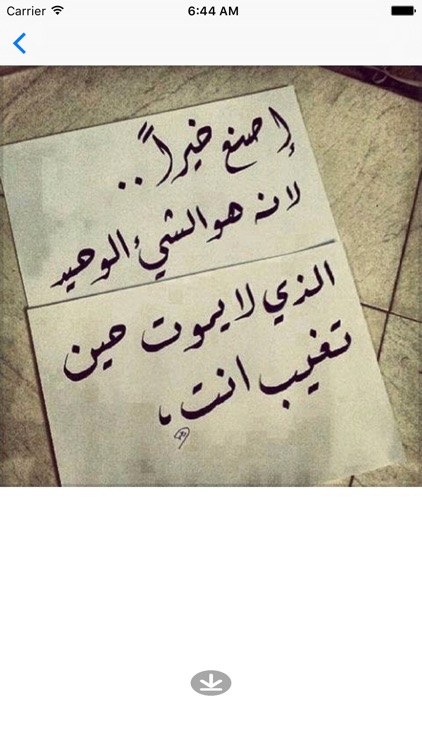 Carrier 6:44 AM
إصنع خيراً..
لانه هوالشيء الوحيد
الذي لايموت حين
تغيب انت،